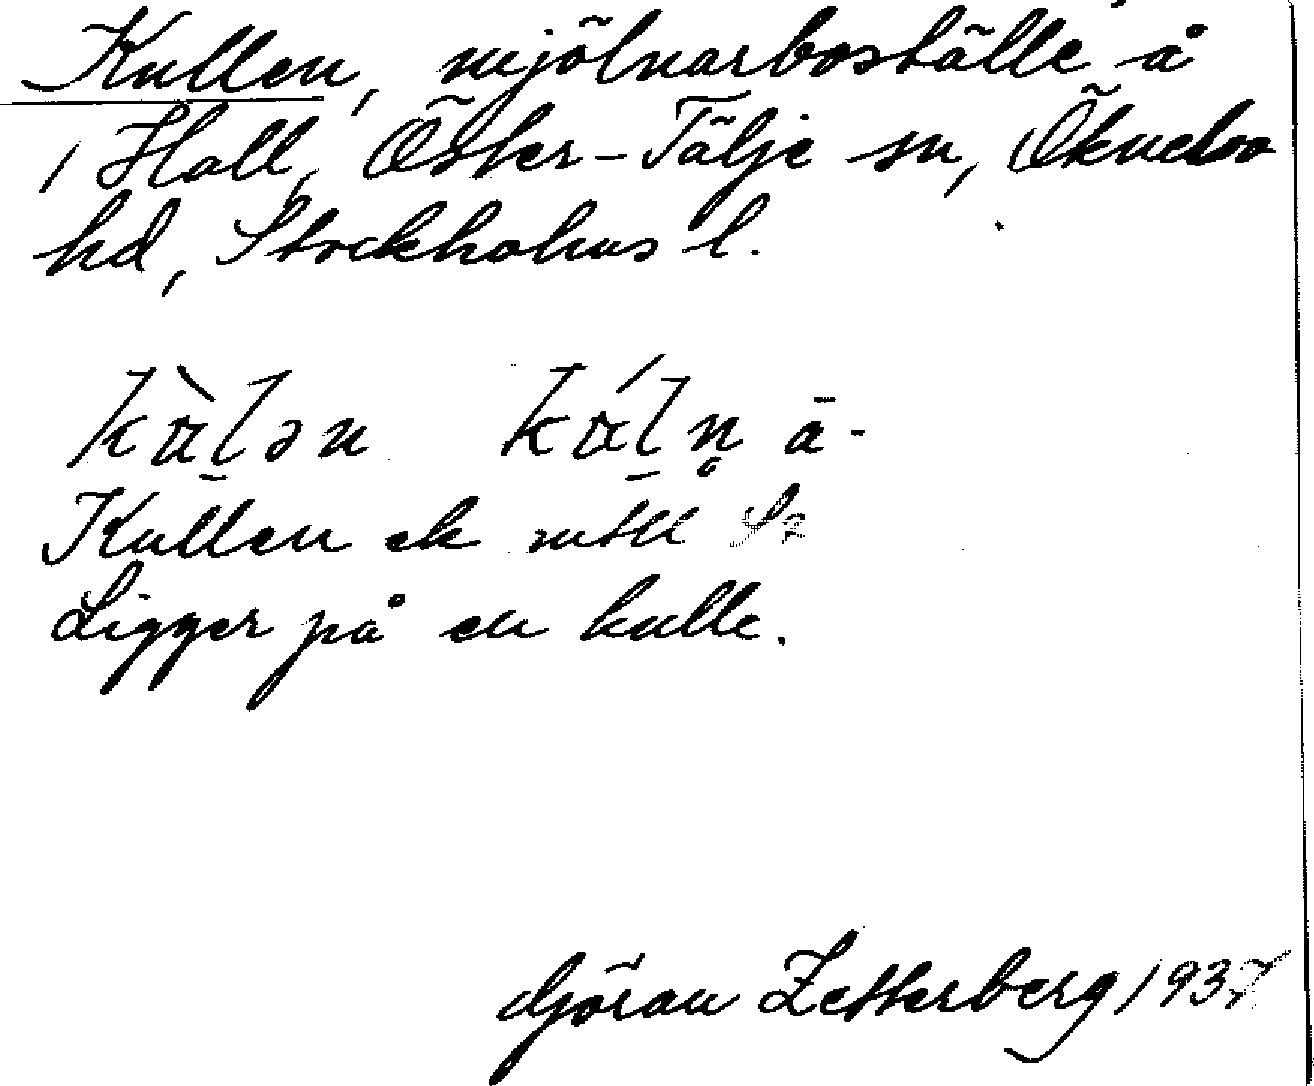 Kullen, mjölnarboställe å
1 Hall, Öster-Tälje sn, Öknebo
hd, Stockholms l.
kɷ̀l̲ən kɷ́l̲n̥ ā-
Kullen ek
Ligger på en kulle.
Göran Zetterberg 1937